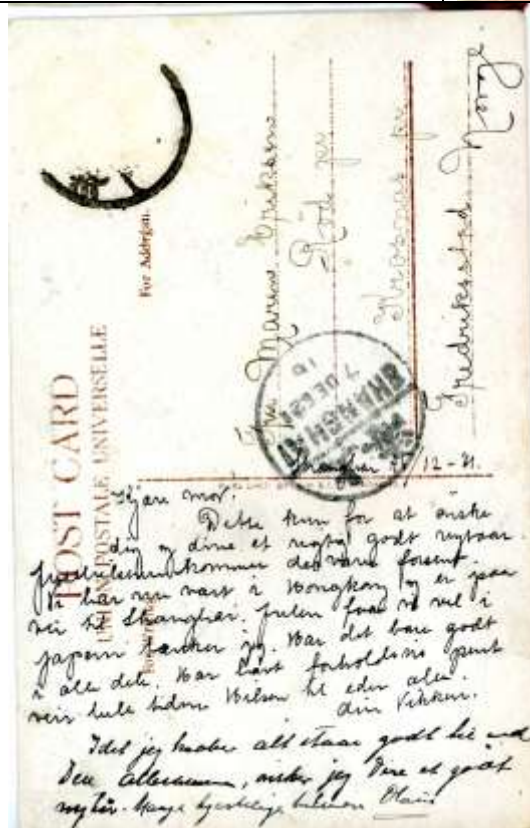 POST CARD
UNION POSTALE UNIVERSELLE
For Address.
Fru Maren Eriksen
Röd pr
Krosnæs pr.
Fredriksstad
SHANGHAI
7 DEC 21
Shanghai 12-21.
Kjære mor.
Dette kun for at ønske
dig og dine et rigtig godt nytaar.
kommer desværre forsent.
Vi har nu vært i Hongkong og er paa
vei til Shanghai. Julen faar vi vel i
Japan tænker jeg. Har det bare godt
i alle dele. Har havt forholdsvis pent
veir hele tiden. Hilsen til eder alle.
din Vikken.
Idet jeg haaber alt staar godt til ved
Dere allesammen, ønsker jeg Dere et godt
nytår. Mange hjertelige hilsener